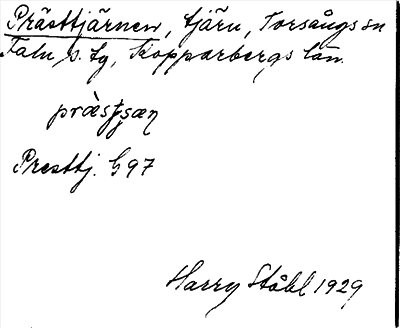 Prästtjärnen, tjärn, Torsångs sn
Falu s. tg, Kopparbergs län.
Presttj. G 97
Harry Ståhl 1929